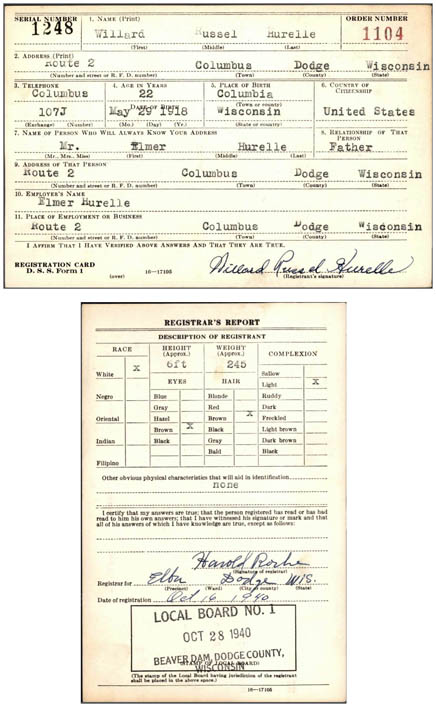 SERIAL NUMBER
1. NAME (Print)
ORDER NUMBER
1248
Willard Russel Hurelle
1104
(First) (Middle) (Last)
2. ADDRESS (Print)
Route 2 Columbus Dodge Wisconsin
(Number and street or R. F. D. number) (Town) (County) (State)
3. TELEPHONE
4. AGE IN YEARS
5. PLACE OF BIRTH
6. COUNTRY OF CITIZENSHIP
Columbus 22 Columbia
DATE OF BIRTH (Town or county)
107J May 29 1918 Wisconsin United States
(Exchange) (Number) (Mo.) (Day) (Yr.) (State or country)
7. NAME OF PERSON WHO WILL ALWAYS KNOW YOUR ADDRESS
8. RELATIONSHIP OF THAT PERSON
Mr. Elmer Hurelle Father
(Mr., Mrs., Miss) (First) (Middle) (Last)
9. ADDRESS OF THAT PERSON
Route 2 Columbus Dodge Wisconsin
(Number and street or R. F. D. number) (Town) (County) (State)
10. EMPLOYER'S NAME
Elmer Hurelle
11. PLACE OF EMPLOYMENT OR BUSINESS
Route 2 Columbus Dodge Wisconsin
(Number and street or R. F. D. number) (Town) (County) (State)
I AFFIRM THAT I HAVE VERIFIED ABOVE ANSWERS AND THAT THEY ARE TRUE.
REGISTRATION CARD
D. S. S. Form 1
(over)
16—17105
Willard Russel Hurelle
(Registrant's signature)
REGISTRAR'S REPORT
DESCRIPTION OF REGISTRANT
RACE
HEIGHT (Approx.)
WEIGHT (Approx.)
COMPLEXION
White X 6ft 245 Sallow
EYES HAIR Light X
Negro Blue Blonde Ruddy
Gray Red Dark
Oriental Hazel Brown X Freckled
Brown X Black Light brown
Indian Black Gray Dark brown
Bald Black
Filipino
Other obvious physical characteristics that will aid in identification
none
I certify that my answers are true; that the person registered has read or has had
read to him his own answers; that I have witnessed his signature or mark and that
all of his answers of which I have knowledge are true, except as follows:
Harold
(Signature of registrar)
Registrar for Elba Dodge Wis.
(Precinct) (Ward) (City or county) (State)
Date of registration Oct 16 1940
LOCAL BOARD NO. 1
OCT 28 1940
BEAVER DAM, DODGE COUNTY,
(STAMP OF LOCAL BOARD)
WISCONSIN
(The stamp of the Local Board having jurisdiction of the registrant
shall be placed in the above space.)
16—17105